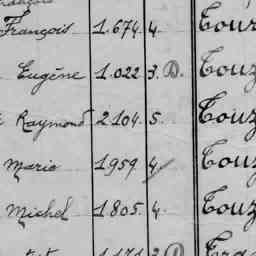 François 1.674 4.
Eugène 1.022 3. D. Touz
Raymond 2104 5. Touz
Marie 1959 4 Touz
Michel 1.805. 4. Touz